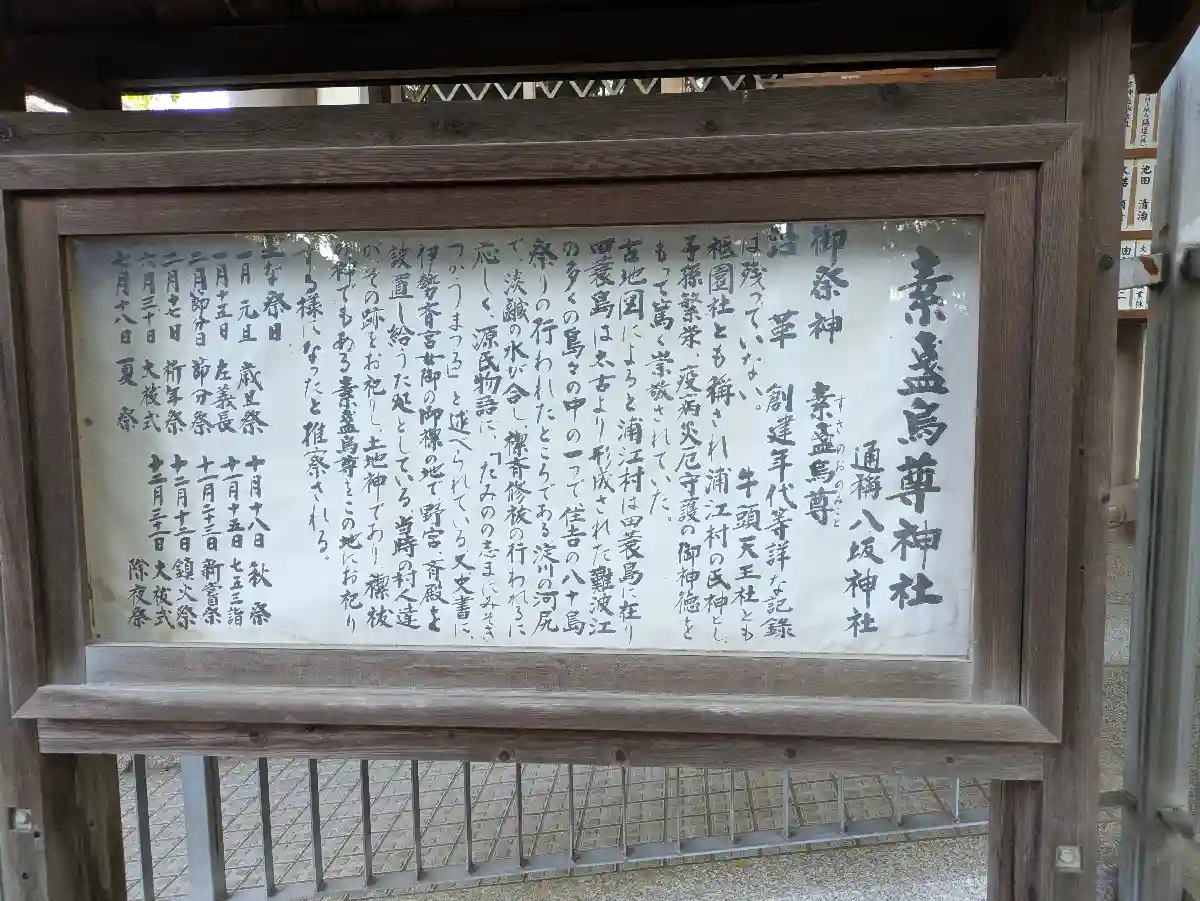 素盞烏尊神社
通称 八坂神社
御祭神 素盞烏尊
すさのおのみこと
沿革 創建年代等詳な記録
は残っていない。 牛頭天王社とも
祇園社とも称され浦江村の氏神とし、
子孫繁栄、疫病災厄守護の御神徳を
もって篤く崇敬されていた。
古地図によると浦江村は田蓑島に在り
田蓑島は太古より形成された難波江
の多くの島々の中の一つで住吉の八十島
祭りの行われたところである淀川の河尻
で、淡鹹の水が合し、禊斉修祓の行われるに
応しく、源氏物語に、「たみのの志まにみそぎ
つかうまつる」と述べられている又史書に
伊勢斉宮女御の御禊の地で野宮、斉殿を
設置し給うた処としている。当時の村人達
がその跡をお祀りし、土地神であり禊祓
の神でもある素盞烏尊をこの地にお祀り
する様になったと推察される。
主な祭日
一月 元旦 歳旦祭
一月十五日 左義長
二月節分日 節分祭
二月十七日 祈年祭
六月三十日 大祓式
七月十八日 夏祭
十月十八日 秋祭
十月十五日 七五三詣
十一月二十三日 新嘗祭
十二月十二日 鎮火祭
十二月三十一日 大祓式
除夜祭
池田 清治